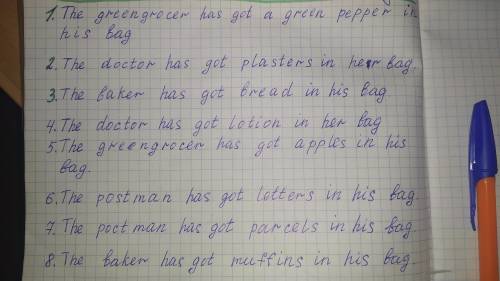 1. The greengrocer has got a green pepper in
his bag
2. The doctor has got plasters in her bag.
3. The baker has got bread in his bag
4. The doctor has got lotion in her bag
5. The greengrocer has got apples in his
bag.
6. The postman has got letters in his bag.
7. The poctman has got parcels in his bag.
8. The baker has got muffins in his bag.